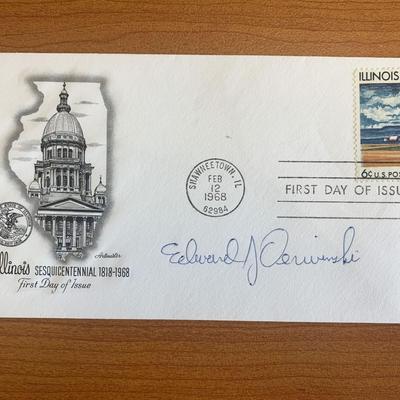 ILLINOIS
6¢ U.S. POS
SHAWNEETOWN, IL
FEB
12
1968
62984
FIRST DAY OF ISSU
Artmaster
Illinois SESQUICENTENNIAL 1818-1968
First Day of Issue
Edward J Derwinski